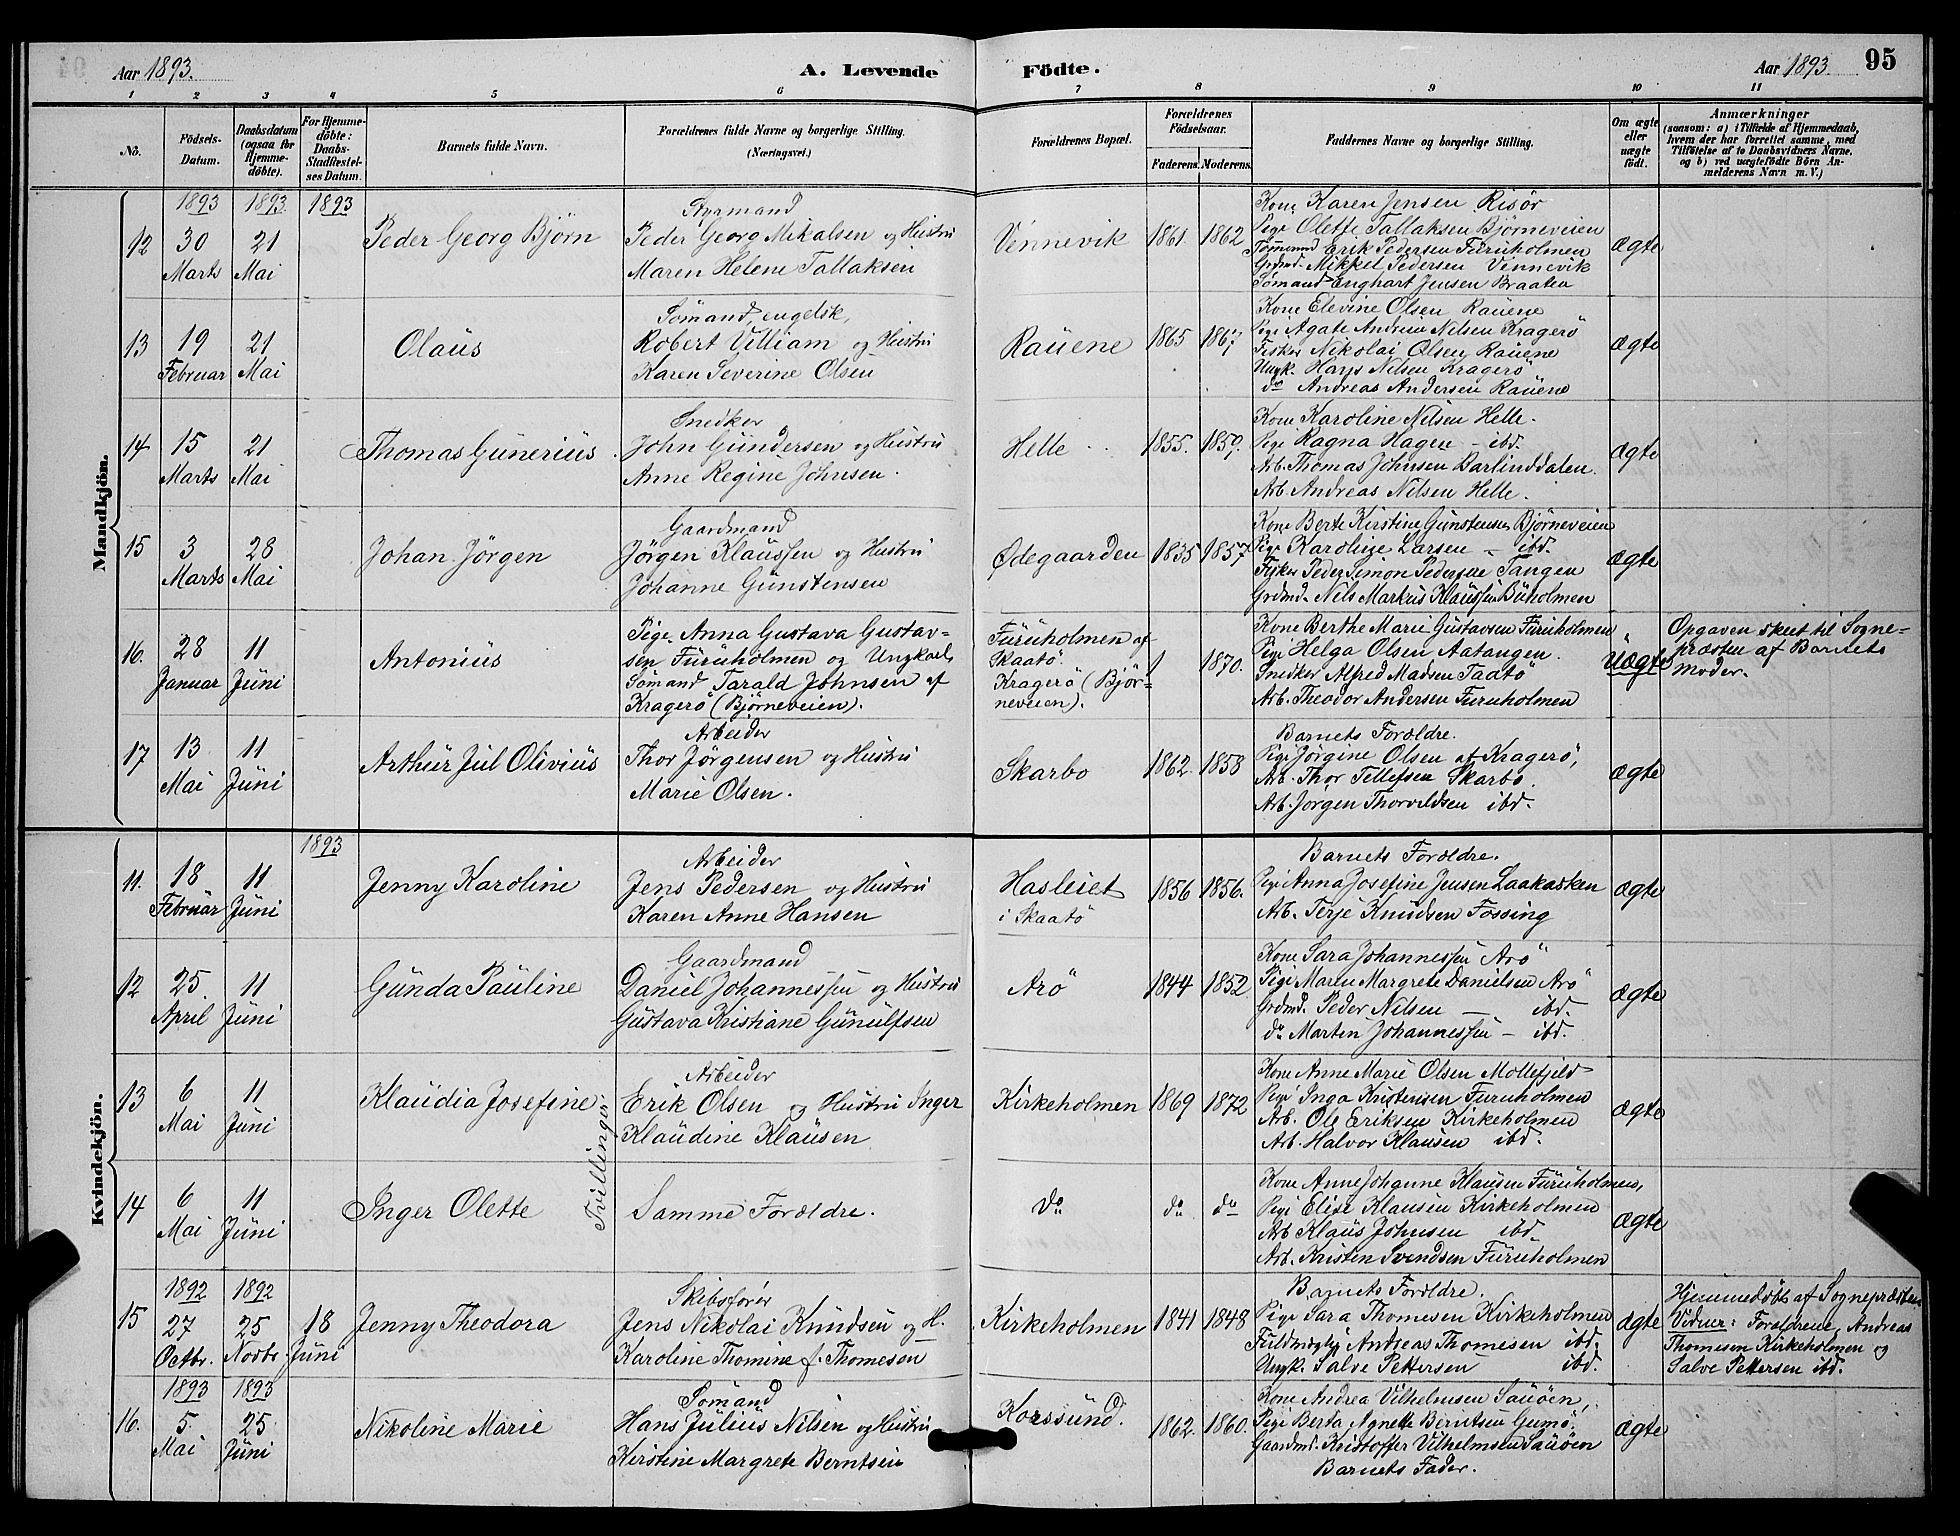 Aar 1893.
A. Levende Födte.
Aar 1893.
95
1 2 3 4 5 6 7 8 9 10 11
No.
Födsels-Datum.
Daabsdatum (ogsaa for Hjemmedöbte).
For Hjemmedöbte: Daabs-Stadfæstelses Datum.
Barnets fulde Navn.
Forældrenes fulde Navne og borgerlige Stilling. (Næringsvei.)
Forældrenes Bopæl.
Forældrenes Födselsaar.
Faderens. Moderens.
Faddernes Navne og borgerlige Stilling.
Om ægte eller uægte födt.
Anmærkninger
(saasom: a) i Tilfælde af Hjemmedaab,
hvem der har forrettet samme, med
Tilföielse af to Daabsvidners Navne,
og b) ved uægtefödte Börn An-
melderens Navn m. V.)
Mandkjön.
1893 1893 1893
12 30 Marts 21 Mai
Peder Georg Björn
Styrmand
Peder Georg Mikalsen og Hustru
Maren Helene Tallaksen
Vennevik 1861 1862
Kone Karen Jensen Risör
Pige Olette Tallaksen Björneveien
Tömmmd Erik Pedersen Furuholmen
Grdmd. Mikkel Pedersen Vennevik
Sömand Enghart Jensen Braaten
ægte
13 19 Februar 21 Mai
Olaus
Sömand, engelsk,
Robert Villiam og Hustru
Karen Severine Olsen
Rauene 1865 1867
Kone Elevine Olsen Rauene
Pige Agate Andrine Nilsen Kragerö
Fisker Nikolai Olsen Rauene
Ungk. Hans Nilsen Kragerö
do Andreas Andersen Rauene
ægte
14 15 Marts 21 Mai
Thomas Gunerius
Snedker
John Gundersen og Hustru
Anne Regine Johnsen.
Helle 1855. 1859.
Kone Karoline Nilsen Helle.
Pige Ragna Hagen – ibd.
Arb. Thomas Johnsen Barlinddalen.
Arb. Andreas Nilsen Helle.
ægte
15 3 Marts 28 Mai
Johan Jörgen
Gaardmand
Jörgen Klaussen og Hustru
Johanne Gunstensen
Ødegaarden 1835 1857
Kone Berte Kirstine Gunstensen Björneveien
Pige Karoline Larsen – ibd.
Fisker Peder Simon Pedersen Tangen
Grdmd. Nils Markus Klaussen Buholmen
ægte
16. 28 Januar 11 Juni
Antonius
Pige Anna Gustava Gustav-
sen Furuholmen og Ungkarl,
Sömand Tarald Johnsen af
Kragerö (Björneveien).
Furuholmen af
Skaatö.
Kragerö (Björ-
neveien).
1870.
Kone Berthe Marie Gustavsen Furuholmen
Pige Helga Olsen Aatangen.
Snedker Alfred Madsen Taatö
Arb. Theodor Andersen Furuholmen
Uægte
Opgaven skeet til Sogne-
præsten af Barnets
Moder.
17 13 Mai 11 Juni
Arthur Jul Olivius
Arbeider
Thor Jörgensen og Hustru
Marie Olsen.
Skarbo 1862. 1858
Barnets Forældre.
Pige Jörgine Olsen af Kragerö,
Arb. Thor Tellefsen Skarbo.
Arb. Jörgen Thorvildsen ibd.
ægte
Kvindekjön.
1893
11. 18 Februar 11 Juni
Jenny Karoline
Arbeider
Jens Pedersen og Hustru
Karen Anne Hansen
Hasleiet
i Skaatö
1856 1856.
Barnets Forældre.
Pige Anna Josefine Jensen Laakasken
Arb. Terje Knudsen Fossing
ægte
12 25 April 11 Juni
Gunda Pauline
Gaardmand
Daniel Johannessen og Hustru
Gustava Kristiane Gunulfsen
Arö 1844 1852
Kone Sara Johannessen Arö
Pige Maren Margrete Danielsen Arö
Grdmd. Peder Nilsen – ibd.
do Martin Johannessen – ibd.
ægte
13 6 Mai 11 Juni
Klaudia Josefine
Tvillinger.
Arbeider
Erik Olsen og Hustru Inger
Klaudine Klausen
Kirkeholmen 1869 1872
Kone Anne Marie Olsen Mollefjeld
Pige Inga Kristensen Furuholmen
Arb. Ole Eriksen Kirkeholmen
Arb. Halvor Klausen ibd.
ægte
14 6 Mai 11 Juni
Inger Olette
Samme Forældre.
do do do
Kone Anne Johanne Klausen Furuholmen,
Pige Elise Klausen Kirkeholmen
Arb Klaus Johnsen ibd.
Arb. Kristen Svendsen Furuholmen
ægte
1892 1892
15 27 Octbr. 25 Novbr. 18 Juni
Jenny Theodora
Skibsförer
Jens Nikolai Knudsen og H.
Karoline Thomine f. Thomesen
Kirkeholmen 1841 1848
Barnets Forældre.
Pige Sara Thomesen Kirkeholmen
Fuldmægtig Andreas Thomesen ibd.
Ungk. Salve Pettersen ibd.
ægte
Hjemmedöbt af Sognepræsten
Vidner: Forældrene, Andreas
Thomesen Kirkeholmen og
Salve Pettersen ibd.
1893 1893
16. 5 Mai 25 Juni
Nikoline Marie
Sömand
Hans Julius Nilsen og Hustru
Kirstine Margrete Berntsen
Korssund. 1862. 1860.
Kone Andrea Vilhelmsen Sauöen,
Pige Berta Agnette Berntsen Gumö,
Gaardmd. Kristoffer Vilhelmsen Sauöen
Barnets Fader.
ægte